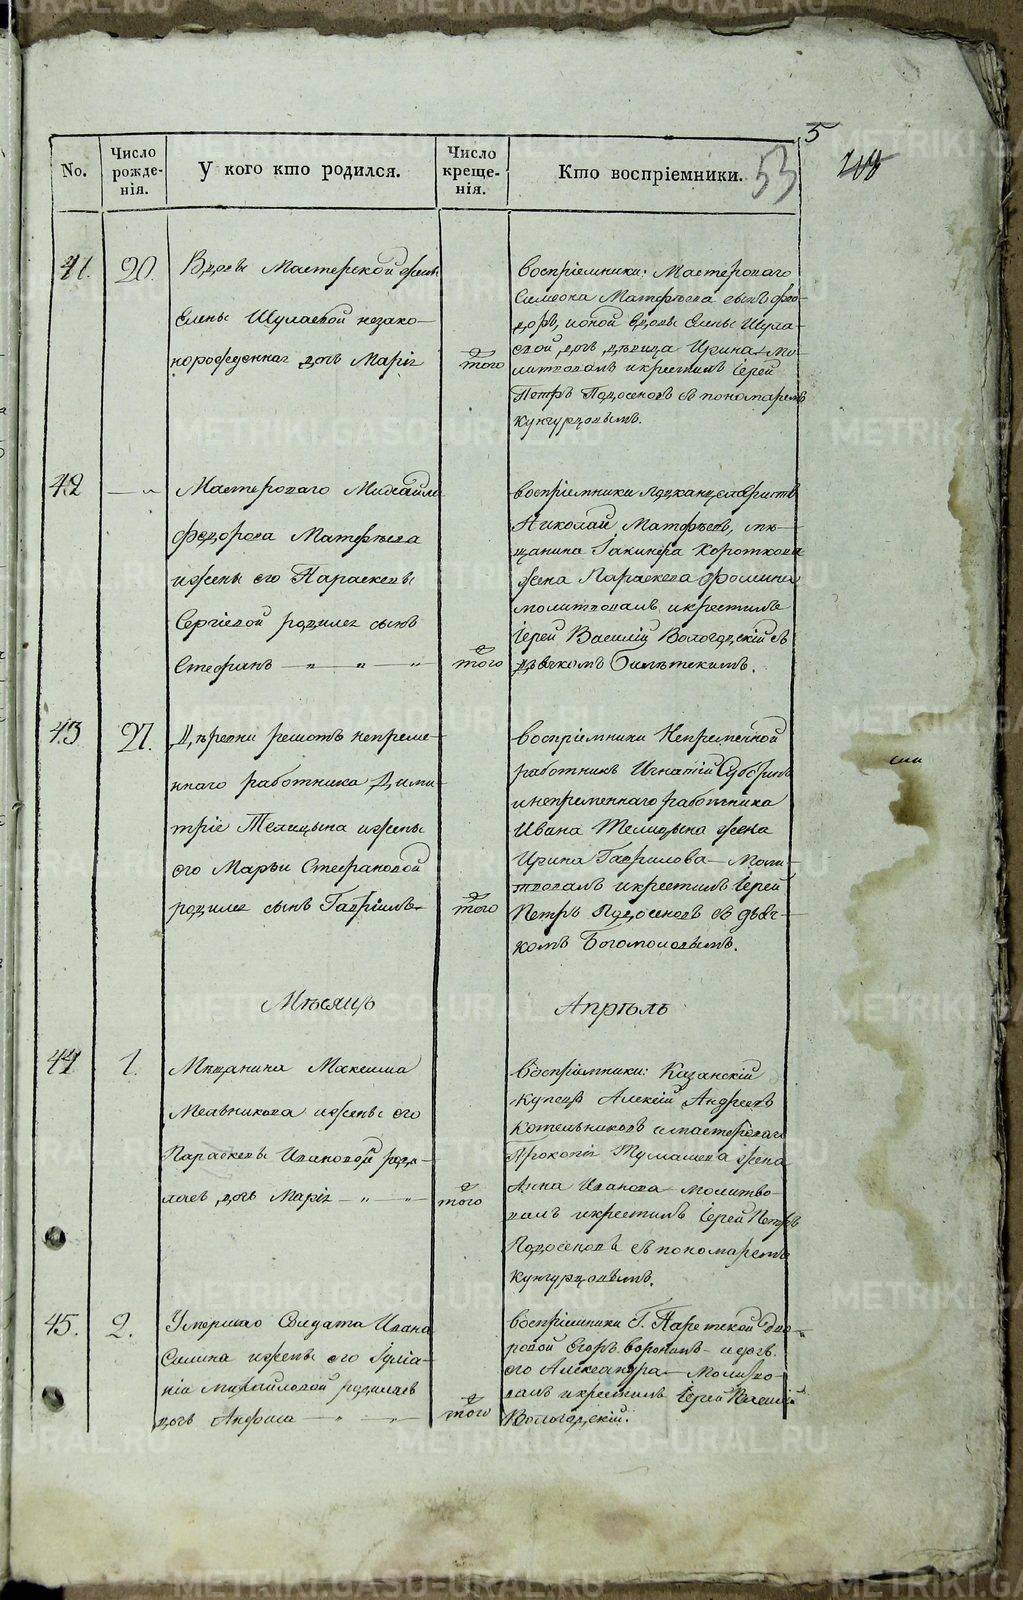 METRIKI.GASO-URAL.RU
5
53
No.
Число рожденія.
У кого кто родился.
Число крещенія.
Кто воспріемники.
41.
20.
Вдовы Мастерской жены
Елены Шулаевой незако-
норожденная дочь Марія
того
воспріемники: Мастероваго
Симеона Матфѣева сынъ Фео-
доръ, и оной вдовы Елены Шула-
евой дочь дѣвица Ирина. Мо-
литвовалъ и крестилъ Іерей
Петръ Подосеновъ съ пономаремъ
Кунгурцовымъ.
42
Мастероваго Михайла
Федорова Матфѣева
и жены его Параскевы
Сергіевой родился сынъ
Стефанъ
того
воспріемники подканцеляристъ
Николай Матфѣевъ, мѣ-
щанина Іакинфа Короткова
жена Параскева Фомина
молитвовалъ и крестилъ
Іерей Василій Вологодскій съ
дьячкомъ
43
27.
Деревни решотъ непреме-
ннаго работника Дими-
трія Телицына и жены
его Марьи Стефановой
родился сынъ Гавріилъ
того
воспріемники Непременной
работникъ Игнатій
и непременнаго работника
Ивана Телицына жена
Ирина Гаврилова Моли-
твовалъ и крестилъ Іерей
Петръ Подосеновъ съ дьяч-
комъ Богомоловымъ.
Мѣсяцъ
Апрѣль
44
1.
Мѣщанина Максима
Мельникова и жены его
Параскевы Ивановой роди-
лась дочь Марія
того
воспріемники: Казанскій
купецъ Алексій Андреевъ
Котельниковъ и мастероваго
Прокопія Тумашева жена
Анна Иванова молитво-
валъ и крестилъ Іерей Петръ
Подосеновъ съ пономаремъ
Кунгурцовымъ.
45.
2.
Умершаго Солдата Ивана
Силина и жены его Іулiа-
ніи Михайловой родилась
дочь Анфиса
того
воспріемники Г. дво-
ровой Егоръ и дочь
его Александра Молитво-
валъ и крестилъ Іерей Василій
Вологодскій.